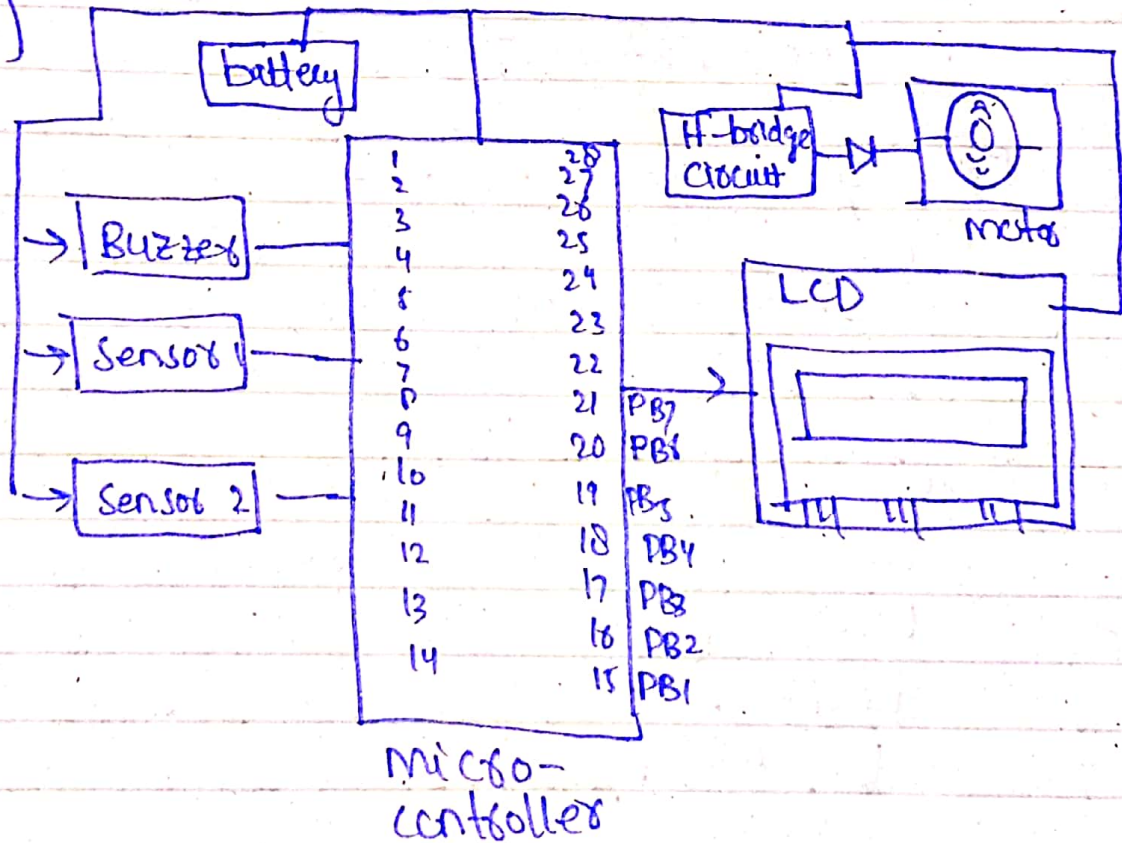 )
battery
H-bridge
circuit
motor
Buzzer
Sensor 1
Sensor 2
LCD
1
2
3
4
5
6
7
8
9
10
11
12
13
14
28
27
26
25
24
23
22
21 PB7
20 PB6
19 PB5
18 PB4
17 PB3
16 PB2
15 PB1
Micro-
controller